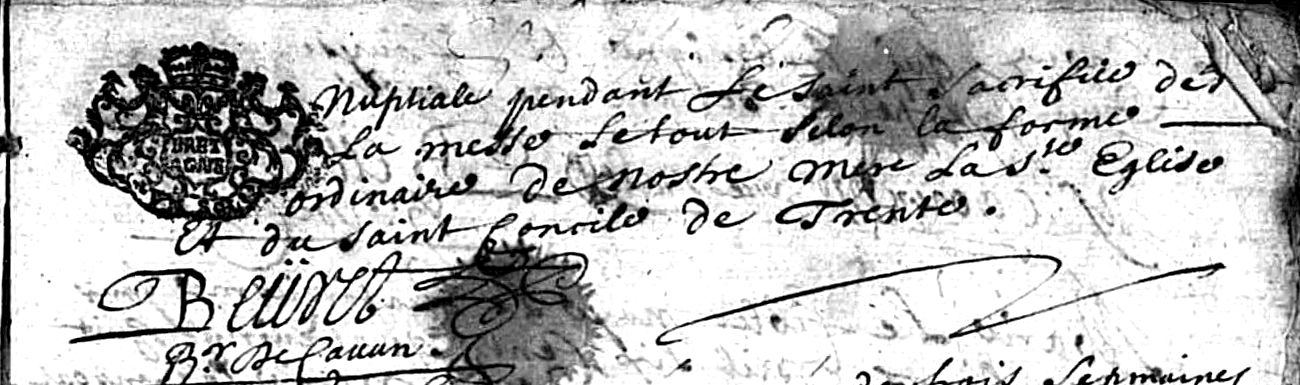 BRET
AGNE
Nuptiale pendant Le saint sacrifice de
La messe Le tout selon la forme
ordinaire de nostre mere La Ste Eglise
Et du saint Concile de Trente.
R.r De Cavan
semaines